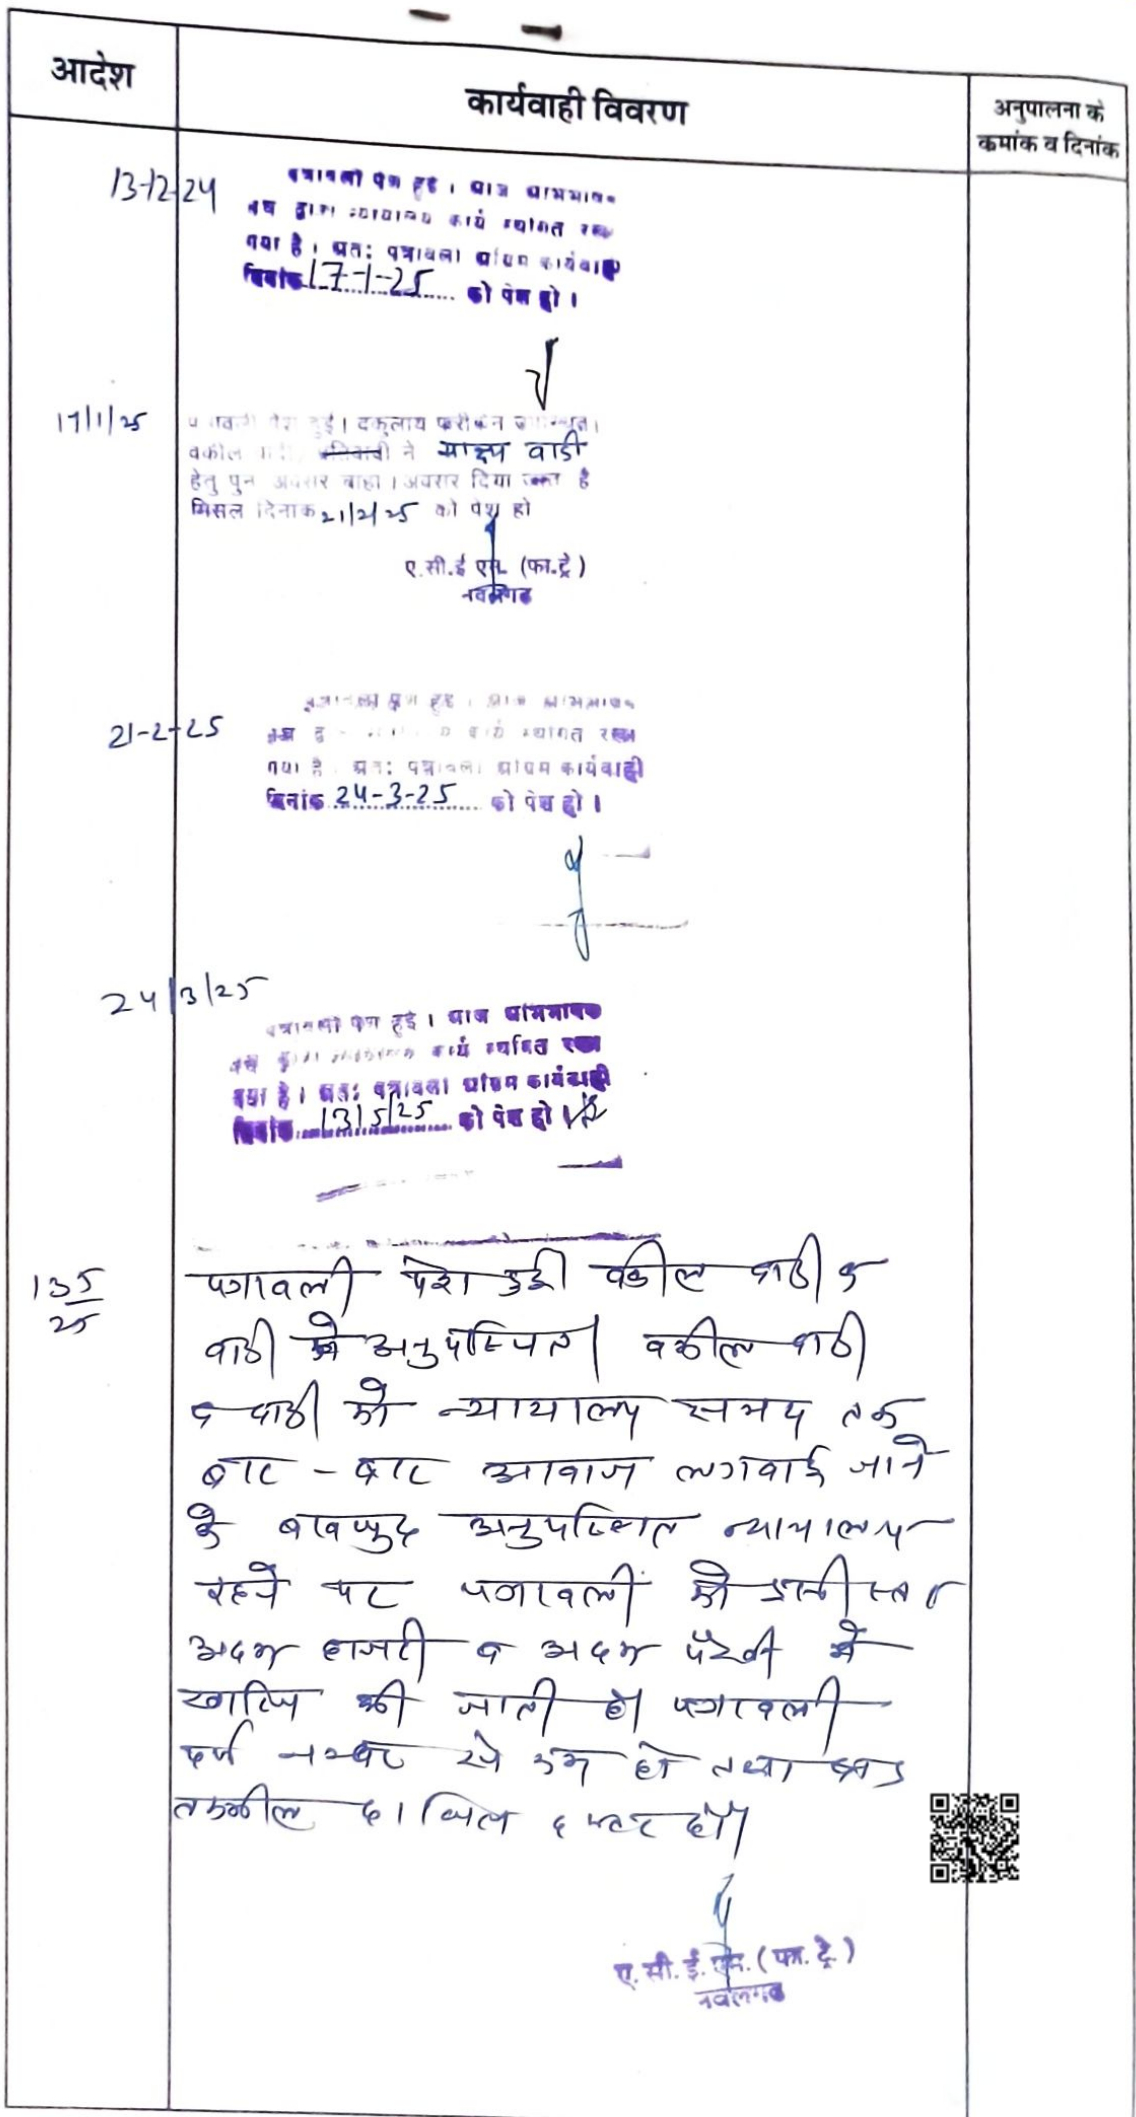 आदेश
कार्यवाही विवरण
अनुपालना के
कमांक व दिनांक
13-12-24
पत्रावली पेश हुई । आज अभिभाषक
संघ द्वारा न्यायालय कार्य स्थगित रखा
गया है । अतः पत्रावली अग्रिम कार्यवाही
दिनांक 17-1-25 को पेश हो ।
17/1/25
पत्रावली पेश हुई । वकुलाय फरीकेन उपस्थित ।
वकील वादी प्रतिवादी ने साक्ष्य वादी
हेतु पुन अवसर चाहा । अवसर दिया जाता है
मिसल दिनाक 21/2/25 को पेश हो
ए.सी.ई एम. (फा.ट्रे)
नवलगढ
21-2-25
पत्रावली पेश हुई । आज अभिभाषक
संघ द्वारा कार्य स्थगित रखा
गया है । अतः पत्रावली अग्रिम कार्यवाही
दिनांक 24-3-25 को पेश हो ।
24/3/25
पत्रावली पेश हुई । आज अभिभाषक
संघ द्वारा न्यायालय कार्य स्थगित रखा
गया है । अतः पत्रावली अग्रिम कार्यवाही
दिनांक 13/5/25 को पेश हो ।
13 5
25
पत्रावली पेश हुई वकील वादी व
वादी अनुपस्थित । वकील वादी
व वादी को न्यायालय समय तक
बार - बार आवाज लगवाई जाने
के बावजुद अनुपस्थित न्यायालय
रहने पर पत्रावली को इसी स्तर
अदम हाजरी व अदम पैरवी मे
खारिज की जाती है। पत्रावली
दर्ज नम्बर से कम हो तथा बाद
तकमील दाखिल दफ्तर हो।
ए.सी.ई.एम.(फा.ट्रे.)
नवलगढ